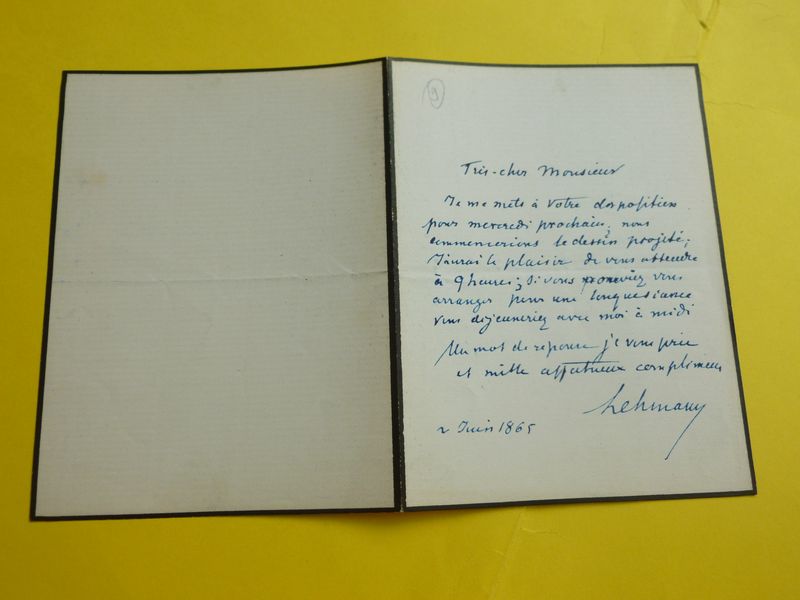 9
Très-cher Monsieur
Je me mets à votre disposition
pour mercredi prochain, nous
commencerions le dessin projeté;
J'aurai le plaisir de vous attendre
à 9 heures; si vous pouviez vous
arranger pour une longue séance
vous déjeuneriez avec moi à midi
Un mot de réponse je vous prie
et mille affectueux compliments
Lehmann
2 Juin 1865